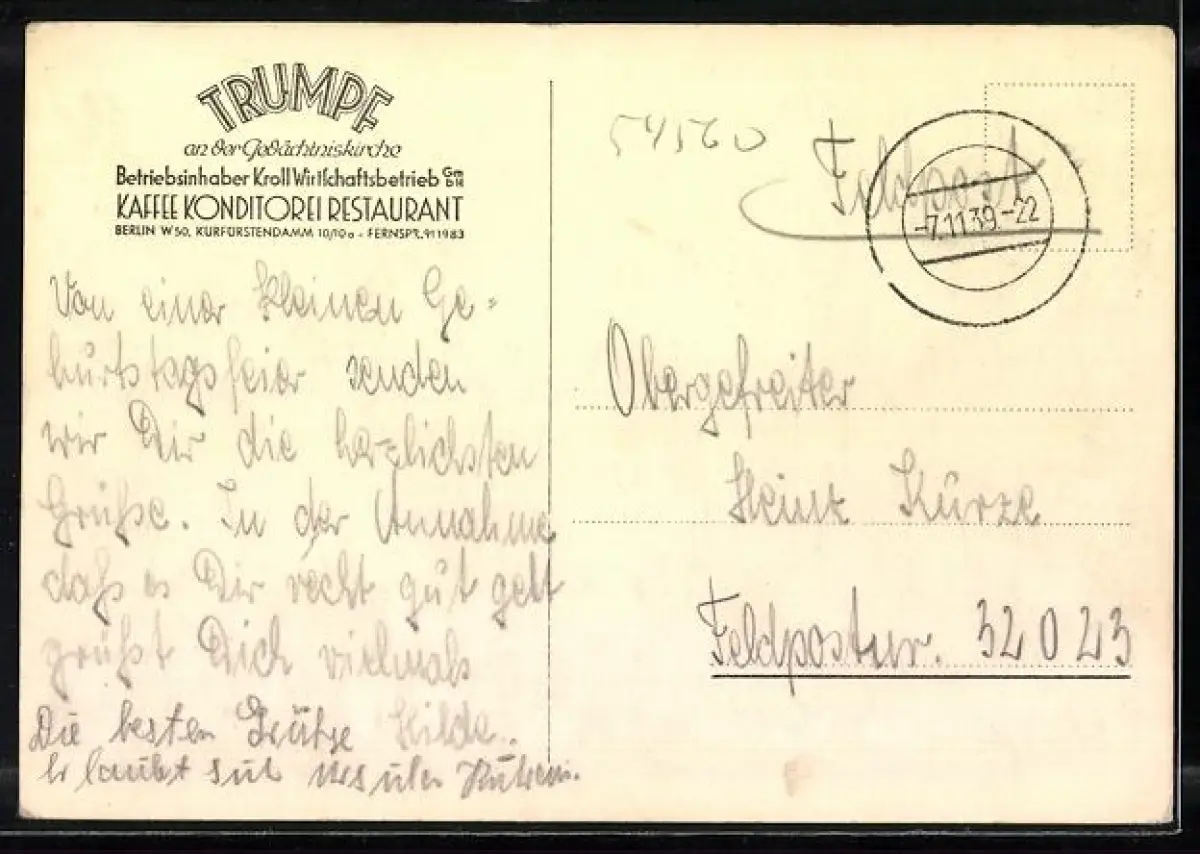 TRUMPF
an der Gedächtniskirche
Betriebsinhaber Kroll Wirtschaftsbetrieb GmbH
KAFFEE KONDITOREI RESTAURANT
BERLIN W 50, KURFÜRSTENDAMM 10/10a - FERNSPR. 911983
Von einer kleinen Ge=
burtstagsfeier senden
wir Dir die herzlichsten
Grüße. In der Annahme
daß es Dir recht gut geht
grüßt Dich vielmals
Hilde.
Die besten Grüße
Erlaubt sich
54560
Feldpost
-7.11.39.-22
Obergefreiter
Heinz Kürze
Feldpostnr. 32023